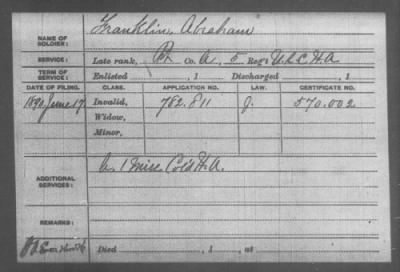 NAME OF SOLDIER: Franklin, Abraham
SERVICE: Late rank, Pvt Co. A, 5 Reg't U.S.C.H.A
TERM OF SERVICE: Enlisted , 1 Discharged , 1
DATE OF FILING. CLASS. APPLICATION NO. LAW. CERTIFICATE NO.
1890 June 17 Invalid, 782.811 J. 570.002
Widow,
Minor,
ADDITIONAL SERVICES: A. 1 Miss. Col'd H.A.
REMARKS:
Died , 1 , at